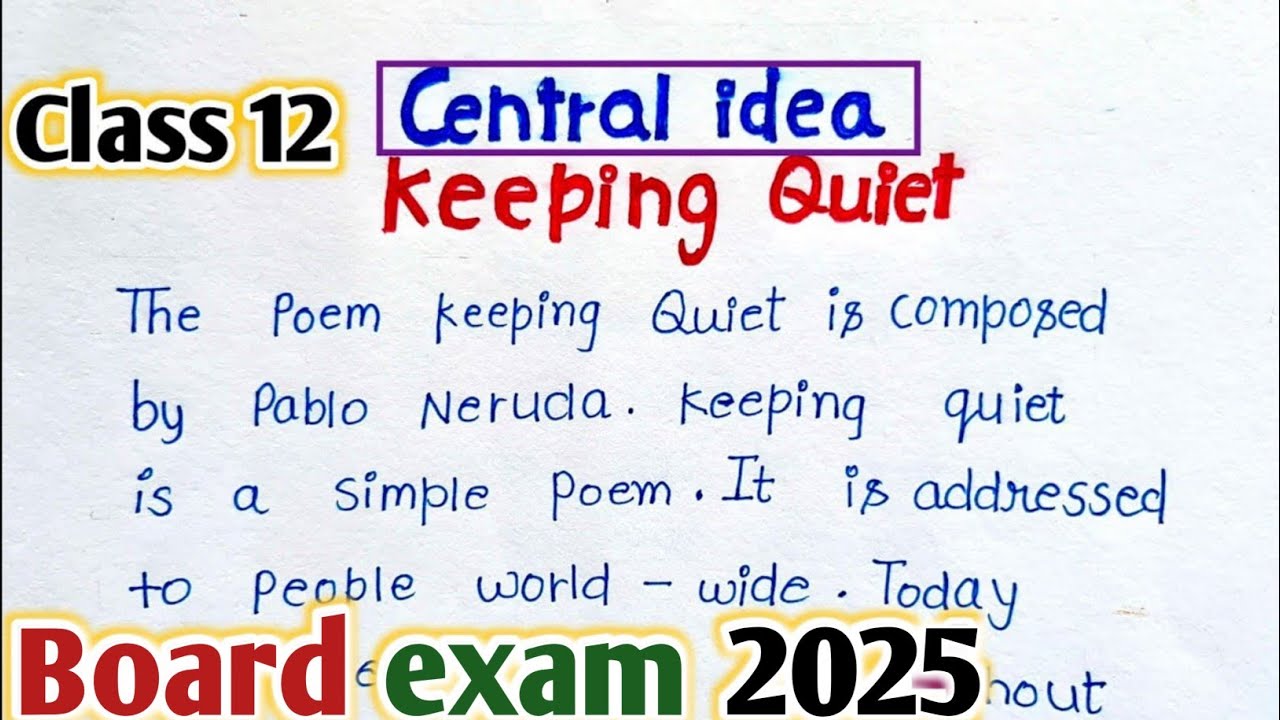 Class 12
Central idea
Keeping Quiet
The Poem Keeping Quiet is composed
by Pablo Neruda. Keeping quiet
is a simple poem. It is addressed
to people world-wide. Today
Board exam 2025
hout